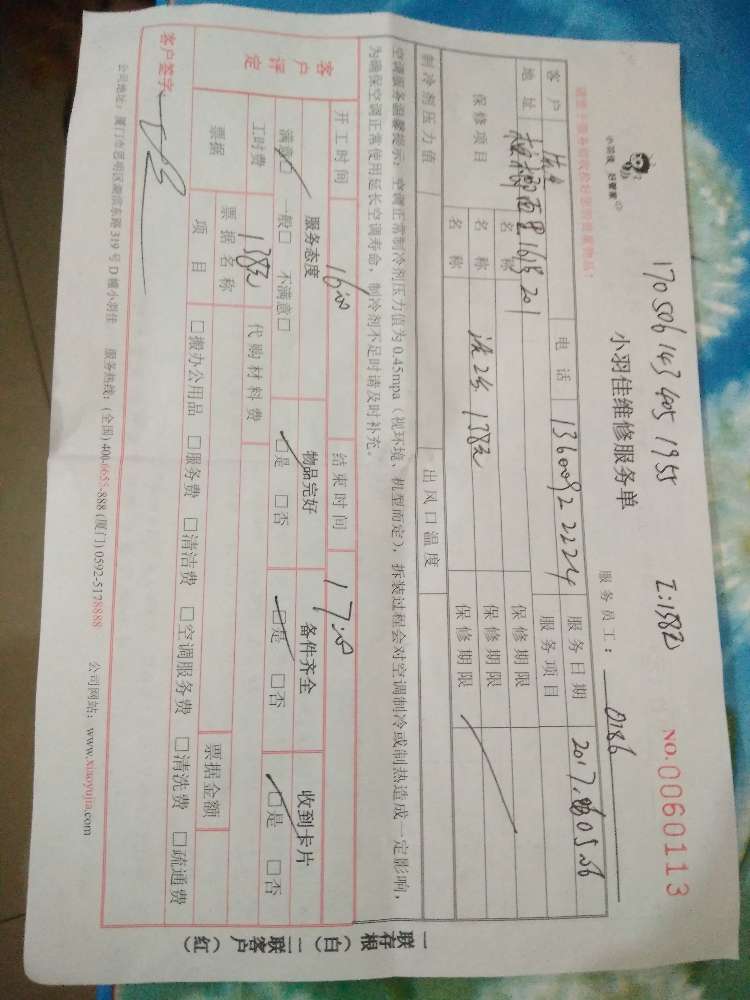 170506143405 1955
Z:1582
小羽佳 好管家
小羽佳维修服务单
NO.0060113
服务员工: 0186
客户 电话 13600922224 服务日期 2017.05.06
地址 西里16号201 服务项目
保修项目 名称 保修期限
名称 洗2台 138元 保修期限
名称 保修期限
制冷剂压力值 出风口温度
空调服务温馨提示:空调正常制冷剂压力值为0.45mpa(视环境、机型而定),拆装过程会对空调制冷或制热造成一定影响,
为确保空调正常使用延长空调寿命,制冷剂不足时请及时补充。
开工时间 16:00 结束时间 17:00
客户评定 服务态度 物品完好 备件齐全 收到卡片
满意□ 一般□ 不满意□ □是 □否 □是 □否 □是 □否
工时费 138元 代购材料费
票据 票据名称 票据金额
项目 □搬办公用品 □服务费 □清洁费 □空调服务费 □清洗费 □疏通费
客户签字:
公司地址:厦门市思明区湖滨东路319号D幢小羽佳 服务热线:(全国)400-6655-888 (厦门)0592-5178888 公司网站:www.xiaoyujia.com
一联存根(白)二联客户(红)